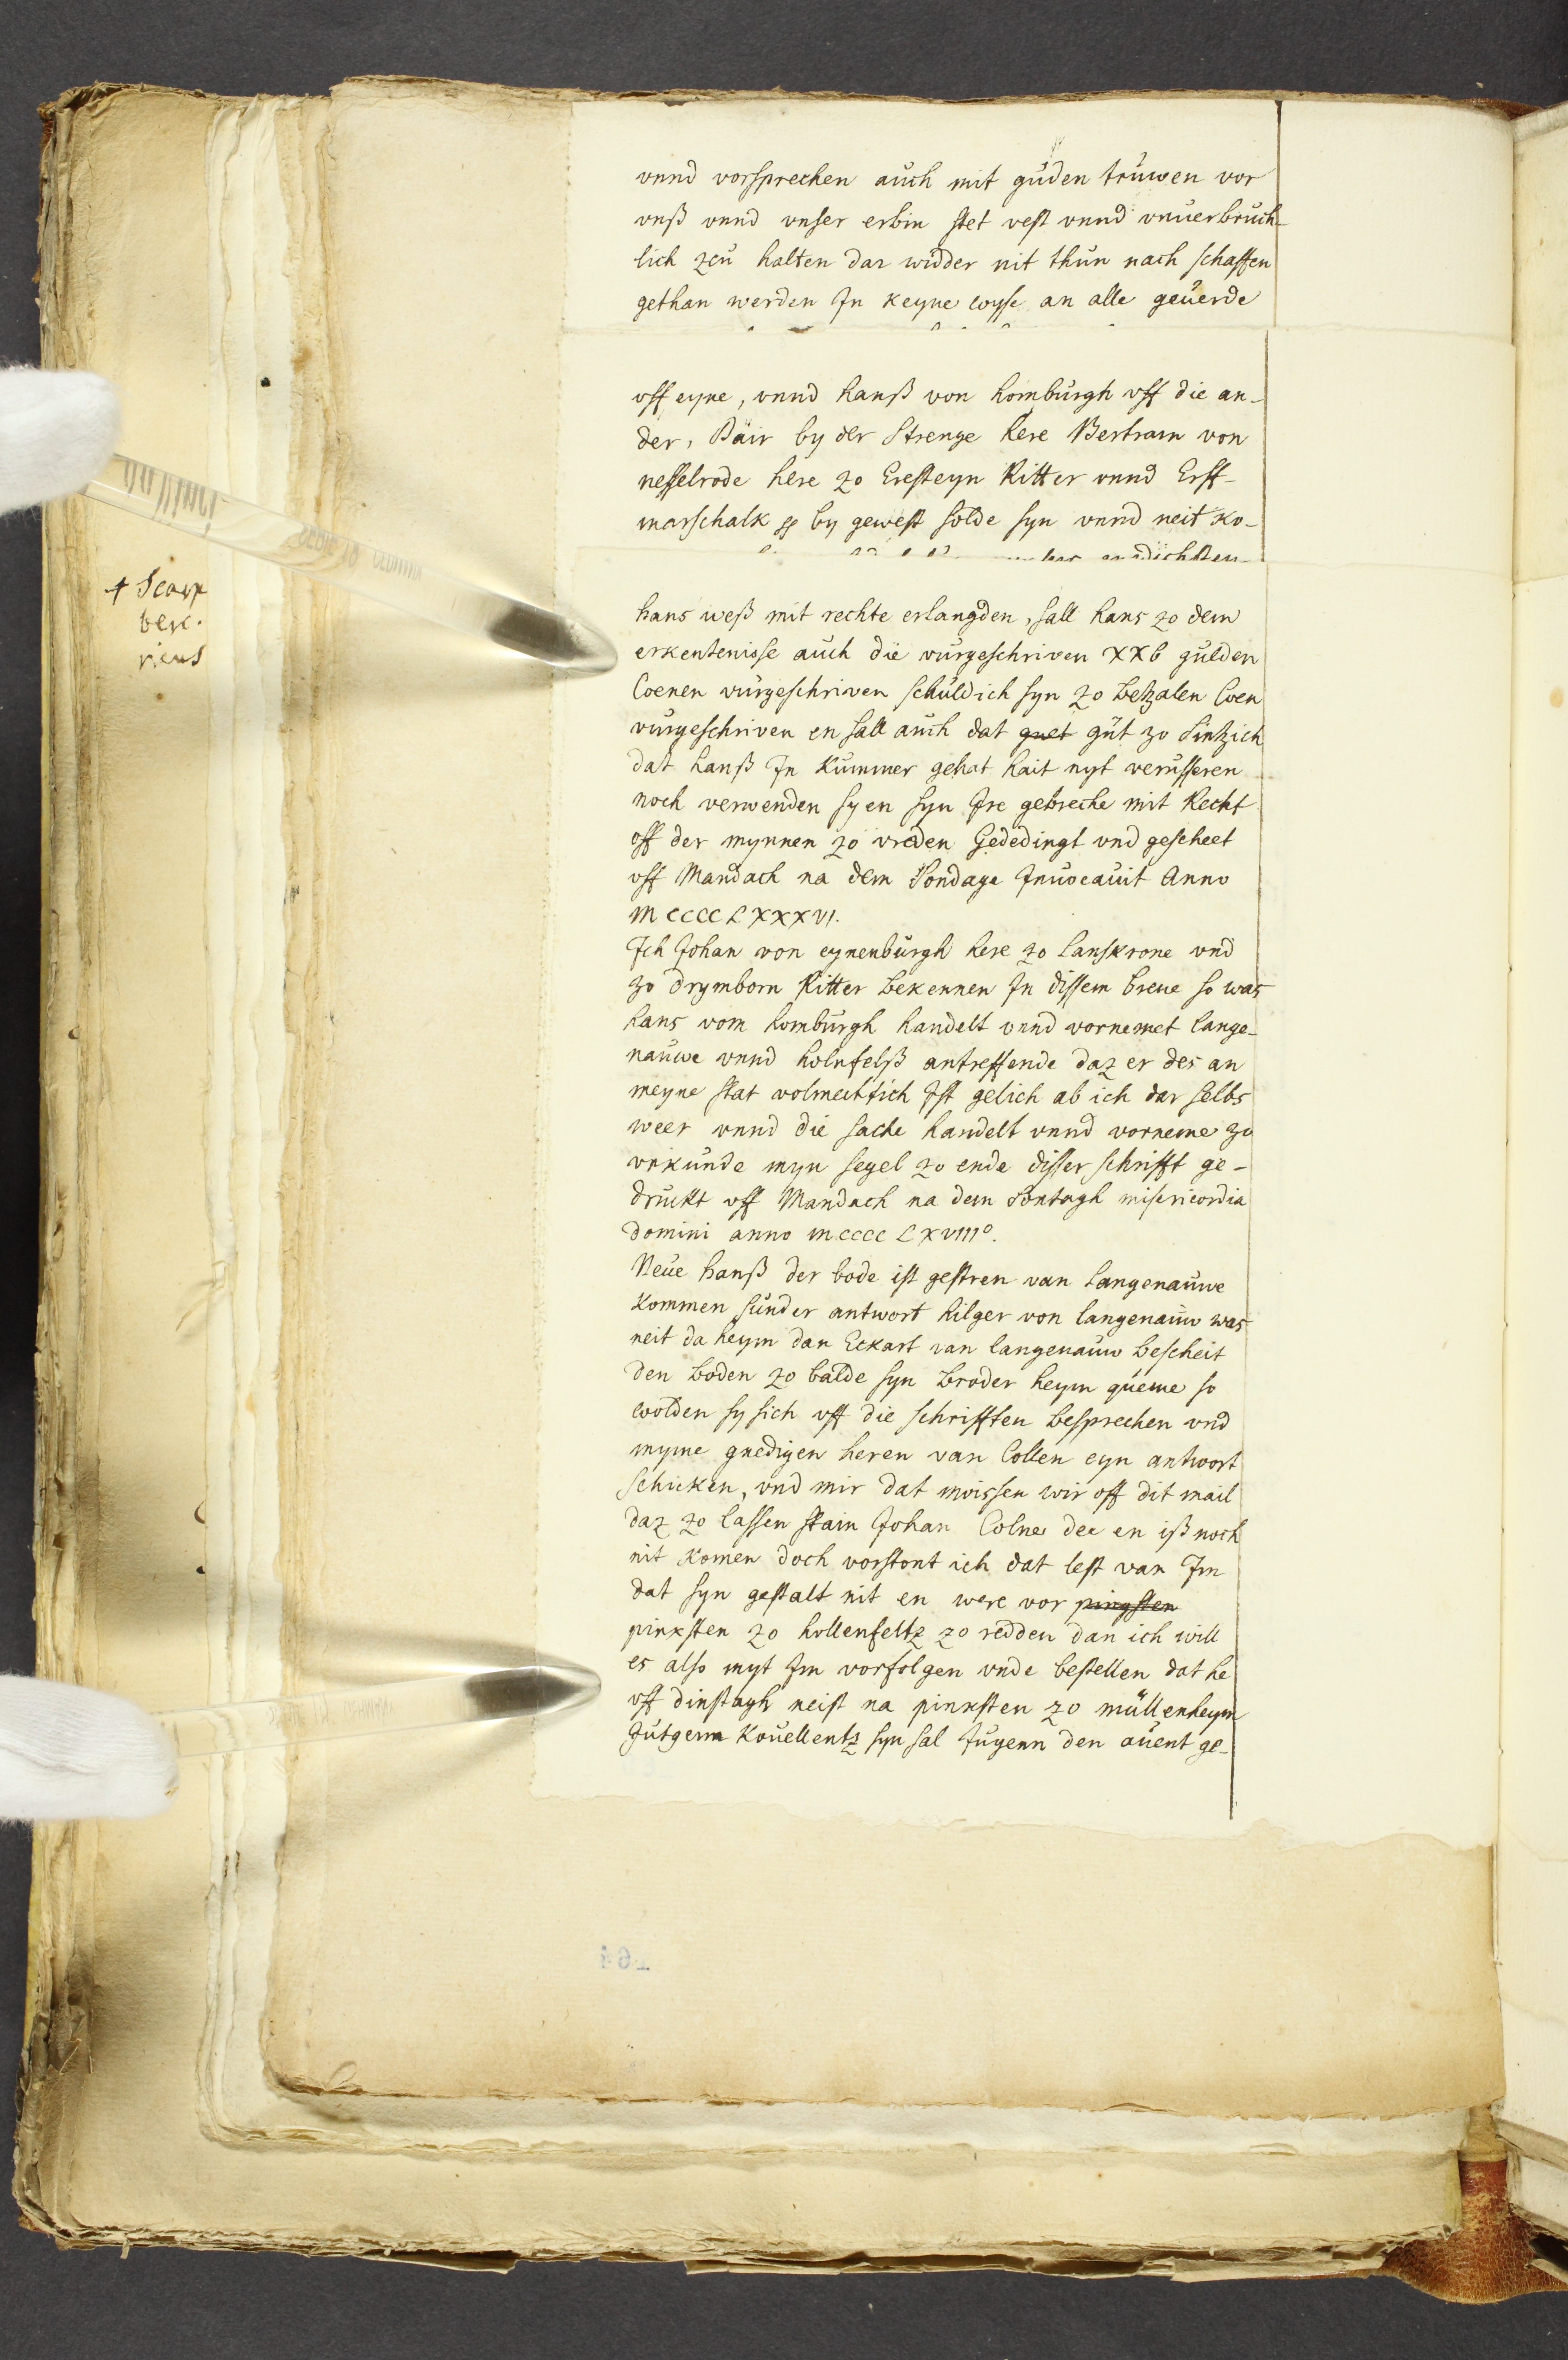 vnnd vorsprechen auch mit guden truwen vor
vnß vnnd vnser erbin stet vest vnnd vnuerbruch-
lich zcu halten dar widder nit thun nach schaffen
gethan werden Jn keyne wyse an alle geuerde
vff eyne, vnnd hanß von homburgh vff die an-
der, Däir by der Strenge here Bertram von
nesselrode here zo Eresteyn Ritter vnnd Erff-
marschalk by gewest solde syn vnnd neit ko-
hans weß mit rechte erlangden, sall hans zo dem
erkentenisse auch die vurgeschriven XXV gulden
Coenen vurgeschriven schuldich syn zo betzalen Coen
vurgeschriven en sall auch dat guet gut zo Sintzich
dat hanß Jn Kummer gehat hait nyt verusseren
noch verwenden sy en syn Jre gebreche mit Recht
off der mynnen zo vreden Gededingt vnd gescheet
vff Mandach na dem Sondage Jnuocauit Anno
M CCCC L XXX VI.
Jch Johan von eynenburgh here zo Lanskrone vnd
zo drymborn Ritter bekennen Jn dissem breue so was
hans vom homburgh handelt vnnd vornemet lange-
nauwe vnnd holnfelß antreffende daz er des an
meyne stat volmechtich Jst gelich ab ich dar selbs
weer vnnd die sache handelt vnnd vorneme zo
vrkunde myn segel zo ende disser schrifft ge-
druckt vff Mandach na dem Sontagh misericordia
domini anno mcccc L XVIII°.
Neue hanß der bode ist gestren van Langenauwe
Kommen sunder antwort hilger von langenauw was
neit da heym dan Eckart van langenauw bescheit
den boden zo balde syn broder heym queme so
wolden sy sich vff die schrifften besprechen vnd
myme gnedigen heren van Collen eyn antwort
schicken, vnd mir dat moissen wir off dit mail
daz zo lassen stain Johan Colner dee en iß noch
nit Komen doch vorstont ich dat lest van Jm
dat syn gestalt nit en were vor pingsten
pinksten zo hollenfeltz zo redden dan ich will
es also myt Jm vorfolgen vnde bestellen dat he
vff dinstagh neist na pinksten zo müllenheym
Jutgerm Kouellentz syn sal Jugenn den auent ge-
164